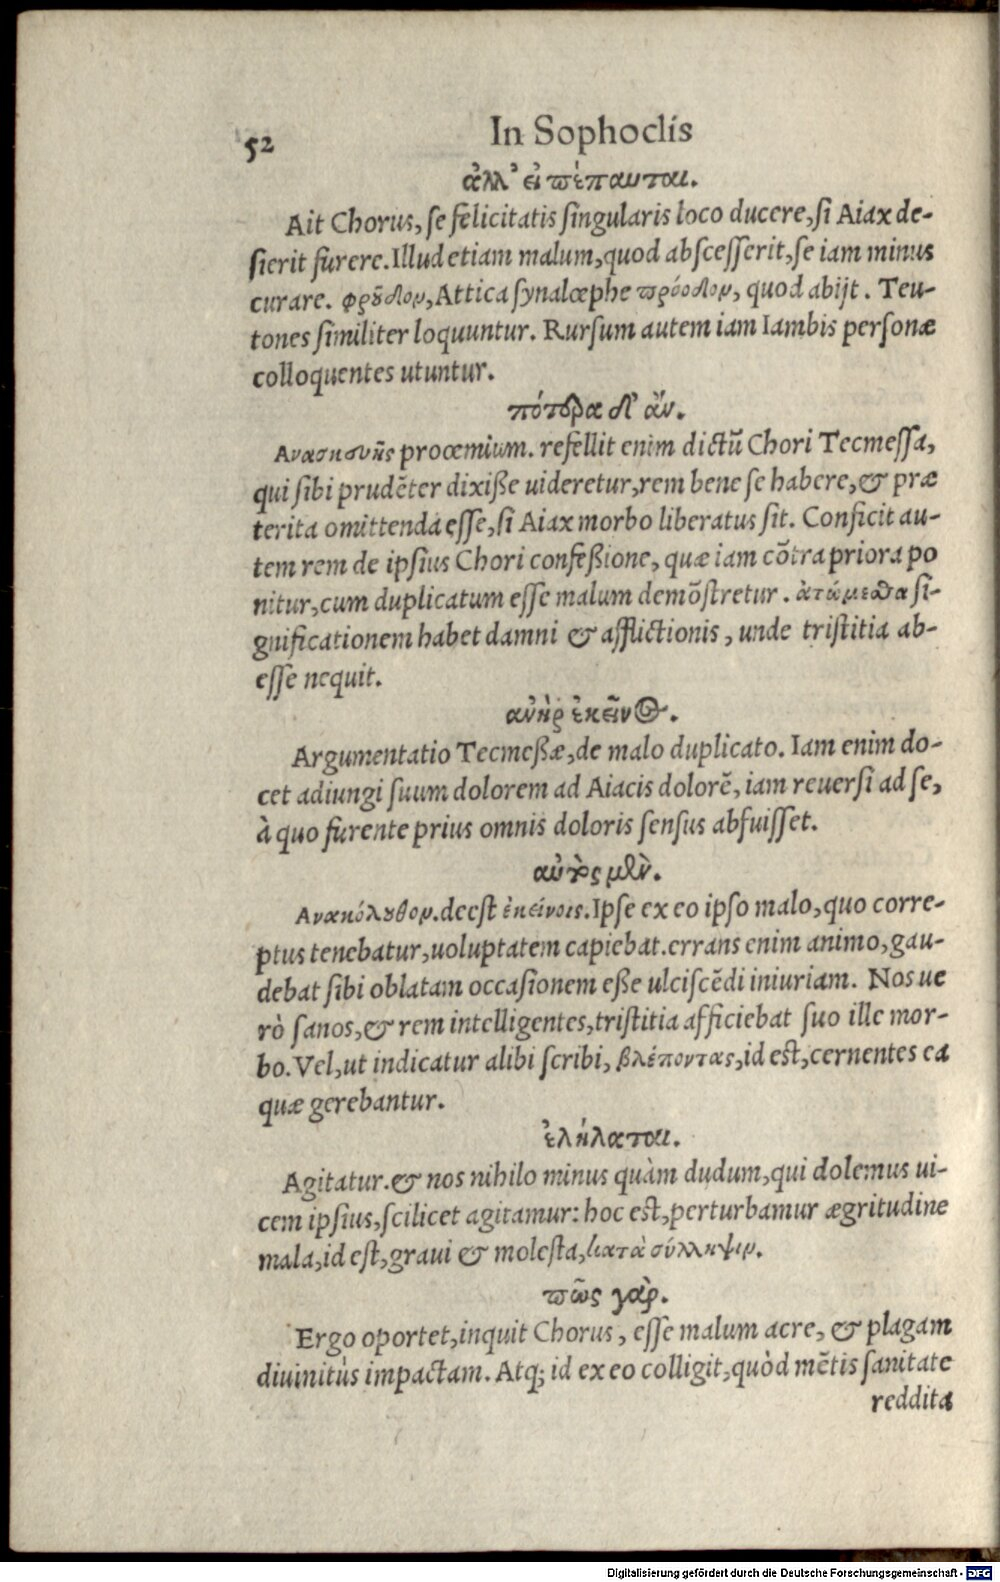 52
In Sophoclis
ἀλλ' εἰ πέπαυται.
Ait Chorus, se felicitatis singularis loco ducere, si Aiax de-
sierit furere. Illud etiam malum, quod abscesserit, se iam minus
curare. φροῦδον, Attica synalœphe πρόοδον, quod abijt. Teu-
tones similiter loquuntur. Rursum autem iam Iambis personæ
colloquentes utuntur.
πότερα δ' ἄν.
Ανασκευῆς proœmium. refellit enim dictũ Chori Tecmessa,
qui sibi prudẽter dixisse uideretur, rem bene se habere, & præ
terita omittenda esse, si Aiax morbo liberatus sit. Conficit au-
tem rem de ipsius Chori confessione, quæ iam cõtra priora po
nitur, cum duplicatum esse malum demõstretur. ἀτώμεσθα si-
gnificationem habet damni & afflictionis, unde tristitia ab-
esse nequit.
ἀνὴρ ἐκεῖνος.
Argumentatio Tecmessæ, de malo duplicato. Iam enim do-
cet adiungi suum dolorem ad Aiacis dolorẽ, iam reuersi ad se,
à quo furente prius omnis doloris sensus abfuisset.
αὐτὸς μὲν.
Ανακόλουθον. deest ἐκείνοις. Ipse ex eo ipso malo, quo corre-
ptus tenebatur, uoluptatem capiebat. errans enim animo, gau-
debat sibi oblatam occasionem esse ulciscẽdi iniuriam. Nos ue
rò sanos, & rem intelligentes, tristitia afficiebat suo ille mor-
bo. Vel, ut indicatur alibi scribi, βλέποντας, id est, cernentes ea
quæ gerebantur.
ἐλήλαται.
Agitatur. & nos nihilo minus quàm dudum, qui dolemus ui-
cem ipsius, scilicet agitamur: hoc est, perturbamur ægritudine
mala, id est, graui & molesta, κατὰ σύλληψιν.
πῶς γὰρ.
Ergo oportet, inquit Chorus, esse malum acre, & plagam
diuinitùs impactam. Atq; id ex eo colligit, quòd mẽtis sanitate
reddita
Digitalisierung gefördert durch die Deutsche Forschungsgemeinschaft - DFG